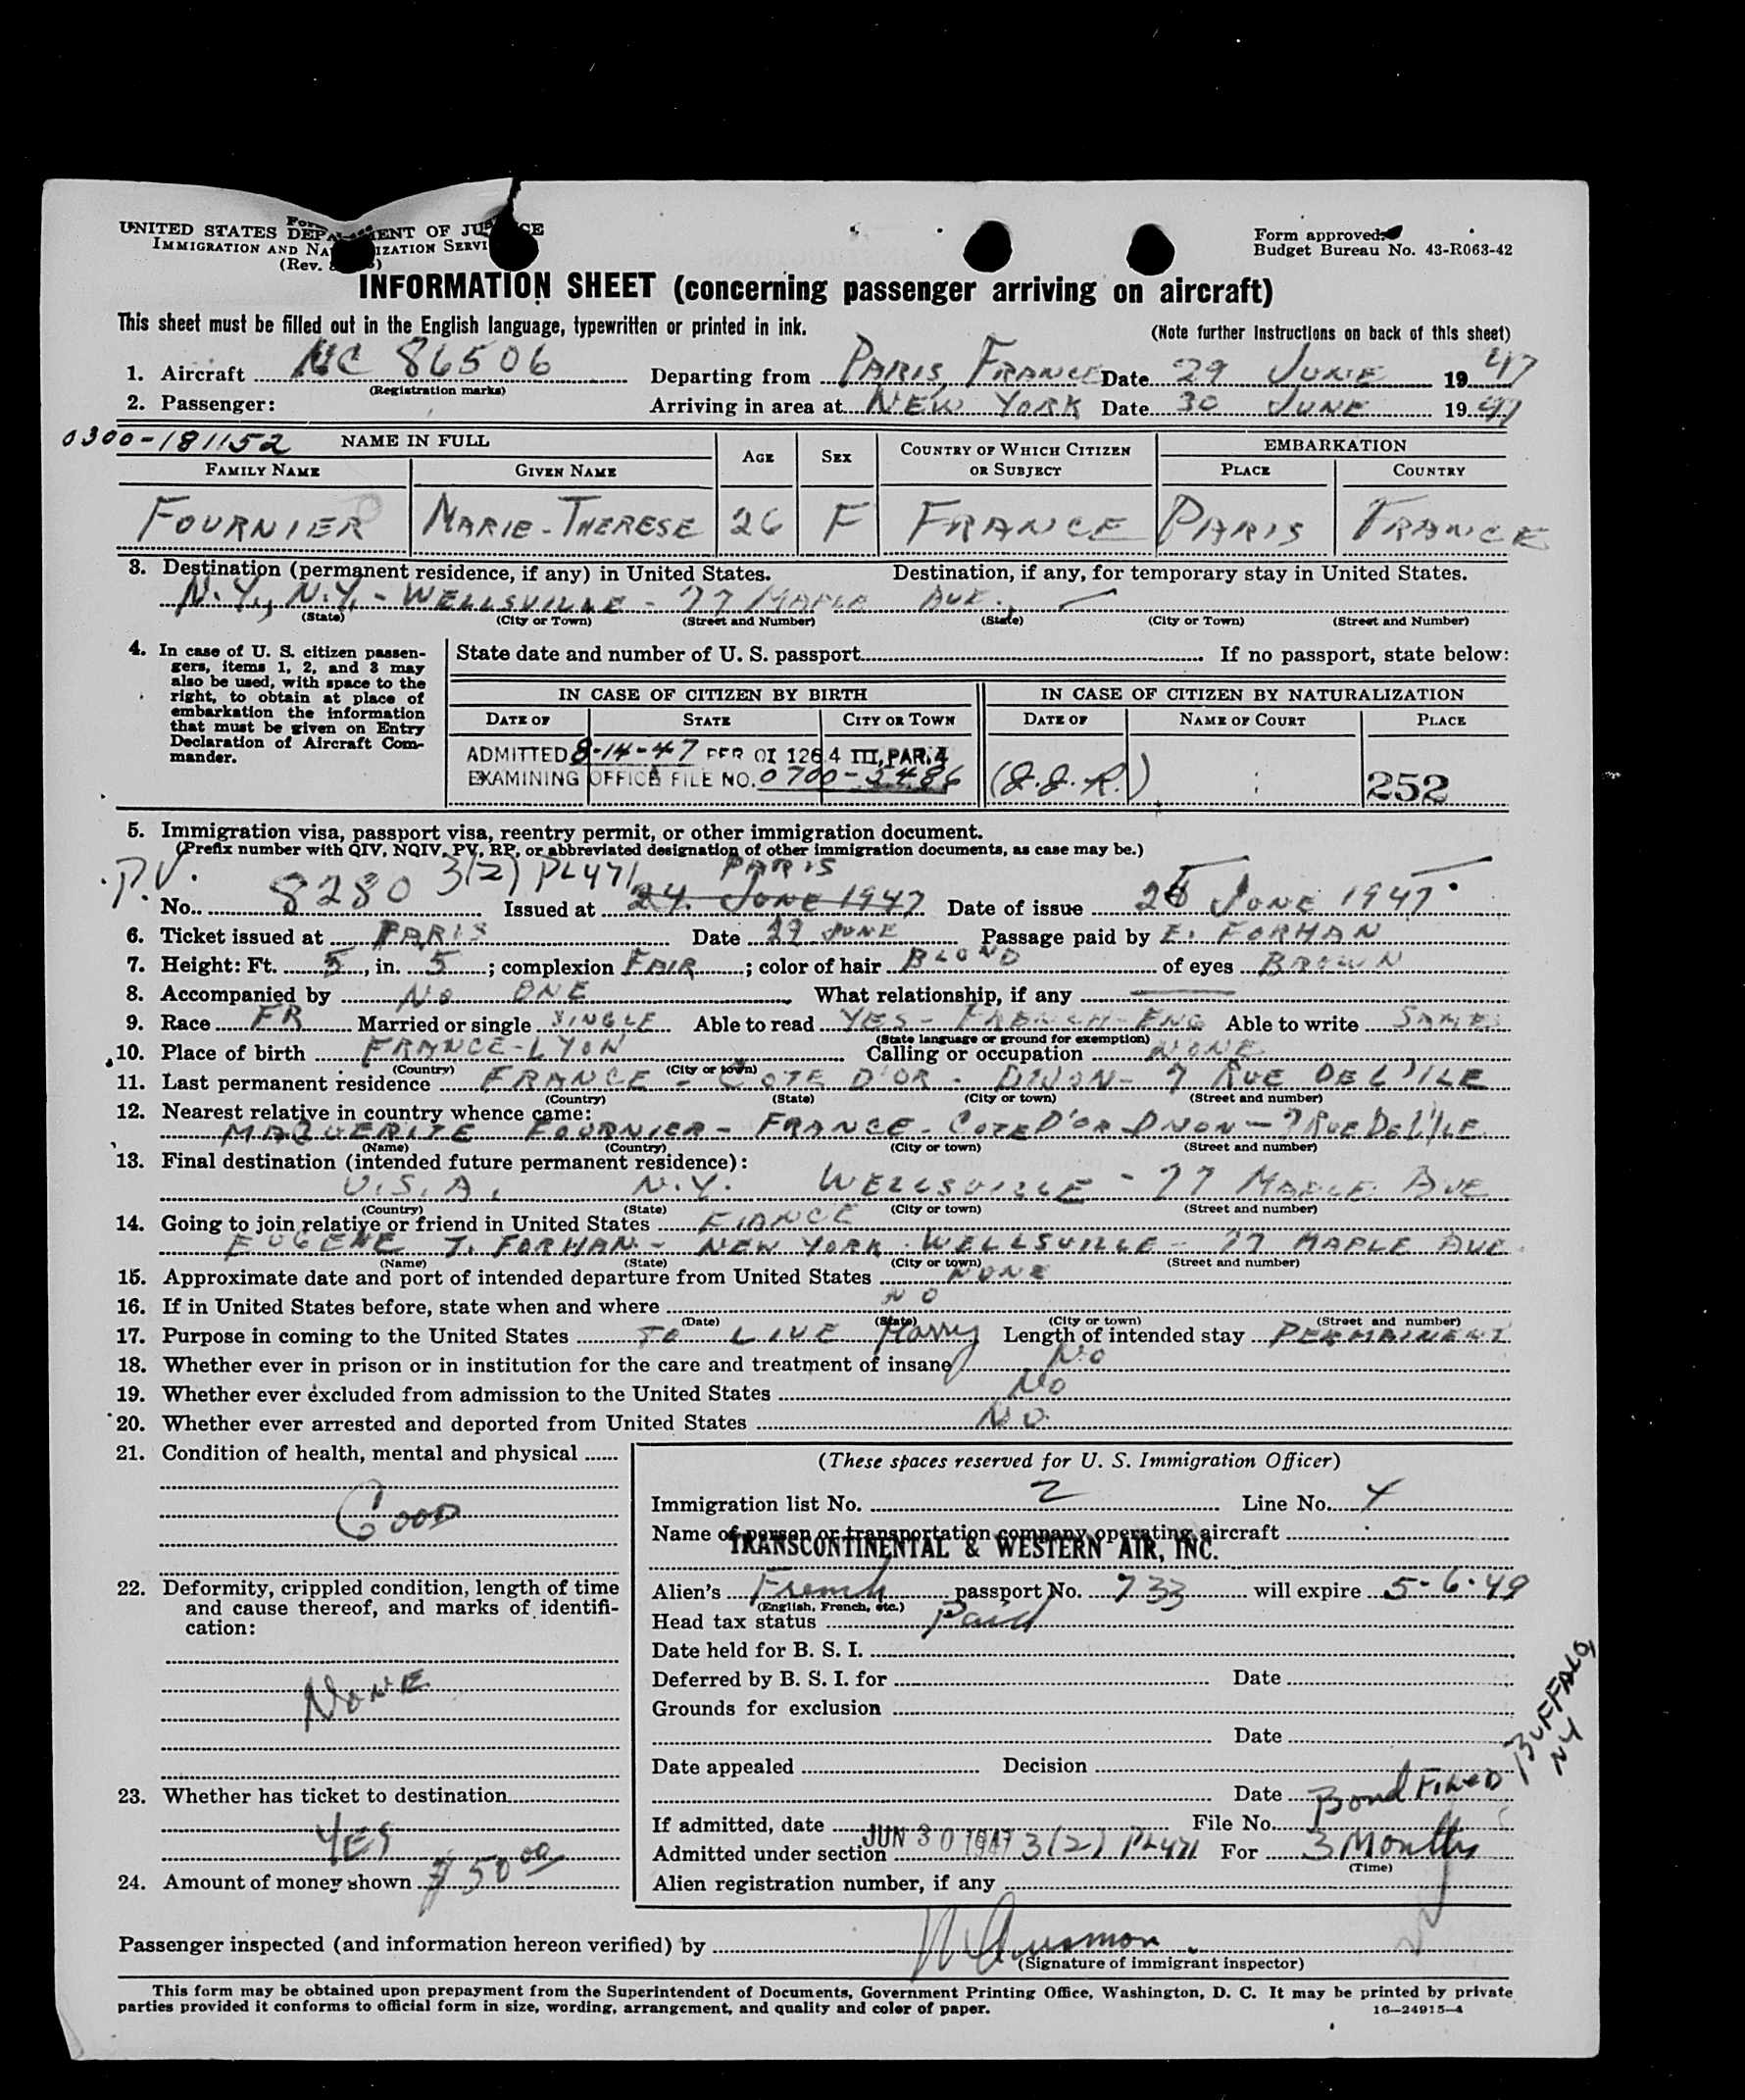 UNITED STATES DEPARTMENT OF JUSTICE
IMMIGRATION AND NATURALIZATION SERVICE
(Rev.
Form approved.
Budget Bureau No. 43-R063-42
INFORMATION SHEET (concerning passenger arriving on aircraft)
This sheet must be filled out in the English language, typewritten or printed in ink. (Note further instructions on back of this sheet)
1. Aircraft NC 86506 Departing from PARIS, FRANCE Date 29 JUNE 1947
(Registration marks)
2. Passenger: Arriving in area at NEW YORK Date 30 JUNE 1947
0300-181152 NAME IN FULL AGE SEX COUNTRY OF WHICH CITIZEN OR SUBJECT EMBARKATION
FAMILY NAME GIVEN NAME PLACE COUNTRY
FOURNIER MARIE-THERESE 26 F FRANCE PARIS FRANCE
3. Destination (permanent residence, if any) in United States. Destination, if any, for temporary stay in United States.
N.Y., N.Y. - WELLSVILLE - 77 MAPLE AVE. —
(State) (City or Town) (Street and Number) (State) (City or Town) (Street and Number)
4. In case of U. S. citizen passen-
gers, items 1, 2, and 3 may
also be used, with space to the
right, to obtain at place of
embarkation the information
that must be given on Entry
Declaration of Aircraft Com-
mander.
State date and number of U. S. passport If no passport, state below:
IN CASE OF CITIZEN BY BIRTH IN CASE OF CITIZEN BY NATURALIZATION
DATE OF STATE CITY OR TOWN DATE OF NAME OF COURT PLACE
ADMITTED 8-14-47 PER OI 126.4 III, PAR. 4
EXAMINING OFFICE FILE NO. 0700-3486 (J.J.R.) 252
5. Immigration visa, passport visa, reentry permit, or other immigration document.
(Prefix number with QIV, NQIV, PV, RP, or abbreviated designation of other immigration documents, as case may be.)
P.V. 3(2) PL471 PARIS
No. 8280 Issued at 24. JUNE 1947 Date of issue JUNE 1947
6. Ticket issued at PARIS Date 29 JUNE Passage paid by E. FORHAN
7. Height: Ft. 5, in. 5; complexion FAIR; color of hair BLOND of eyes BROWN
8. Accompanied by NO ONE What relationship, if any —
9. Race FR Married or single SINGLE Able to read YES - FRENCH - ENG Able to write SAME
(State language or ground for exemption)
10. Place of birth FRANCE - LYON Calling or occupation NONE
(Country) (City or town)
11. Last permanent residence FRANCE - COTE D'OR - DIJON - 7 RUE DE L'ILE
(Country) (State) (City or town) (Street and number)
12. Nearest relative in country whence came:
MAGUERITE FOURNIER - FRANCE - COTE D'OR DIJON - 7 RUE DE L'ILE
(Name) (Country) (City or town) (Street and number)
13. Final destination (intended future permanent residence):
U.S.A. N.Y. WELLSVILLE - 77 MAPLE AVE
(Country) (State) (City or town) (Street and number)
14. Going to join relative or friend in United States FIANCE
EUGENE T. FORHAN - NEW YORK - WELLSVILLE - 77 MAPLE AVE.
(Name) (State) (City or town) (Street and number)
15. Approximate date and port of intended departure from United States NONE
16. If in United States before, state when and where NO
(Date) (State) (City or town) (Street and number)
17. Purpose in coming to the United States TO LIVE Marry Length of intended stay PERMAINENT
18. Whether ever in prison or in institution for the care and treatment of insane NO
19. Whether ever excluded from admission to the United States NO
20. Whether ever arrested and deported from United States NO
21. Condition of health, mental and physical
GOOD
22. Deformity, crippled condition, length of time
and cause thereof, and marks of identifi-
cation:
NONE
23. Whether has ticket to destination
YES
24. Amount of money shown $50.00
(These spaces reserved for U. S. Immigration Officer)
Immigration list No. 2 Line No. 4
Name of person or transportation company operating aircraft
TRANSCONTINENTAL & WESTERN AIR, INC.
Alien's French passport No. 733 will expire 5-6-49
(English, French, etc.)
Head tax status Paid
Date held for B. S. I.
Deferred by B. S. I. for Date
Grounds for exclusion
Date
Date appealed Decision
Date Bond FILED BUFFALO NY
If admitted, date JUN 30 1947 File No.
Admitted under section 3(2) PL471 For 3 Months
(Time)
Alien registration number, if any
Passenger inspected (and information hereon verified) by
(Signature of immigrant inspector)
This form may be obtained upon prepayment from the Superintendent of Documents, Government Printing Office, Washington, D. C. It may be printed by private
parties provided it conforms to official form in size, wording, arrangement, and quality and color of paper. 16—24915-4